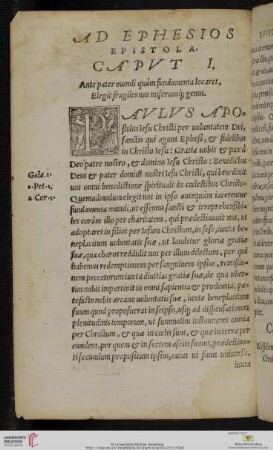 AD EPHESIOS
EPISTOLA.
CAPVT I.
Ante pater mundi quàm fundamenta locaret,
Elegit fragiles nos miserumq; genus.
PAVLVS APO-
stolus Iesu Christi per voluntatem Dei,
sanctis qui agunt Ephesi, & fidelibus
in Christo Iesu: Gratia vobis & pax à
Deo patre nostro, & domino Iesu Christo: Benedictus
Gala. 1. Deus & pater domini nostri Iesu Christi, qui benedixit
1. Pet. 1. nos omni benedictione spirituali in cœlestibus Christo:
2. Cor. 1. Quemadmodum elegit nos in ipso antequàm iacerentur
fundamenta mundi, ut essemus sancti & irreprehensibi-
les coram illo per charitatem, qui prædestinauit nos, ut
adoptaret in filios per Iesum Christum, in sese, iuxta be-
neplacitum voluntatis suæ, ut laudetur gloria gratiæ
suæ, qua charos reddidit nos per illum dilectum, per quē
habemus redemptionem per sanguinem ipsius, remissio-
nem peccatorum iuxta diuitias gratiæ suæ, de qua uber-
tim nobis impartiuit in omni sapientia & prudentia, pa-
tefacto nobis arcano voluntatis suæ, iuxta beneplacitum
suum quod proposuerat in seipso, usq; ad dispensationem
plenitudinis temporum, ut summatim instauraret omnia
per Christum, & quæ in cœlis sunt, & quæ in terra per
eundem, per quem in sortem asciti sumus, prædestina-
ti secundum propositum ipsius, cuius vi fiunt uniuersa,
iuxta